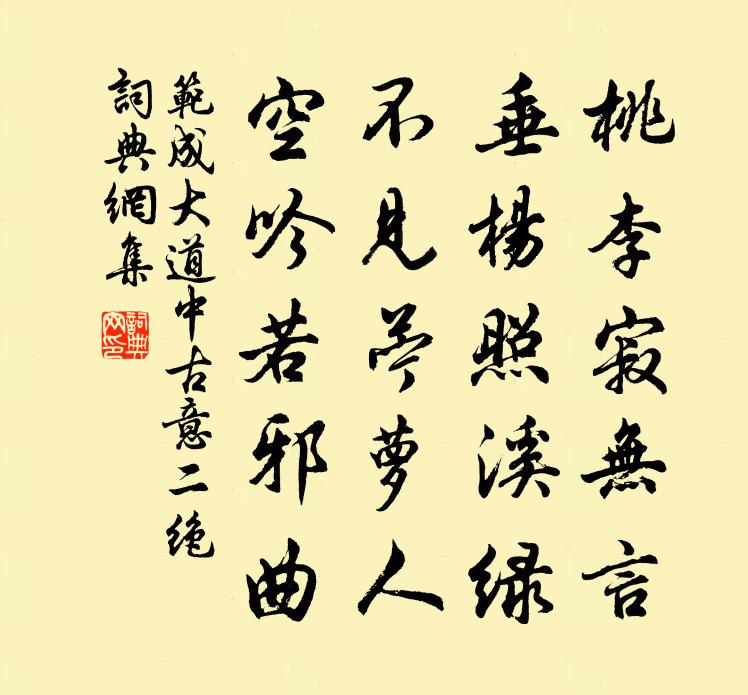 桃李寂無言
垂楊照溪绿
不見苎萝人
空吟若邪曲
範成大道中古意二绝
詞典網集
詞典网印